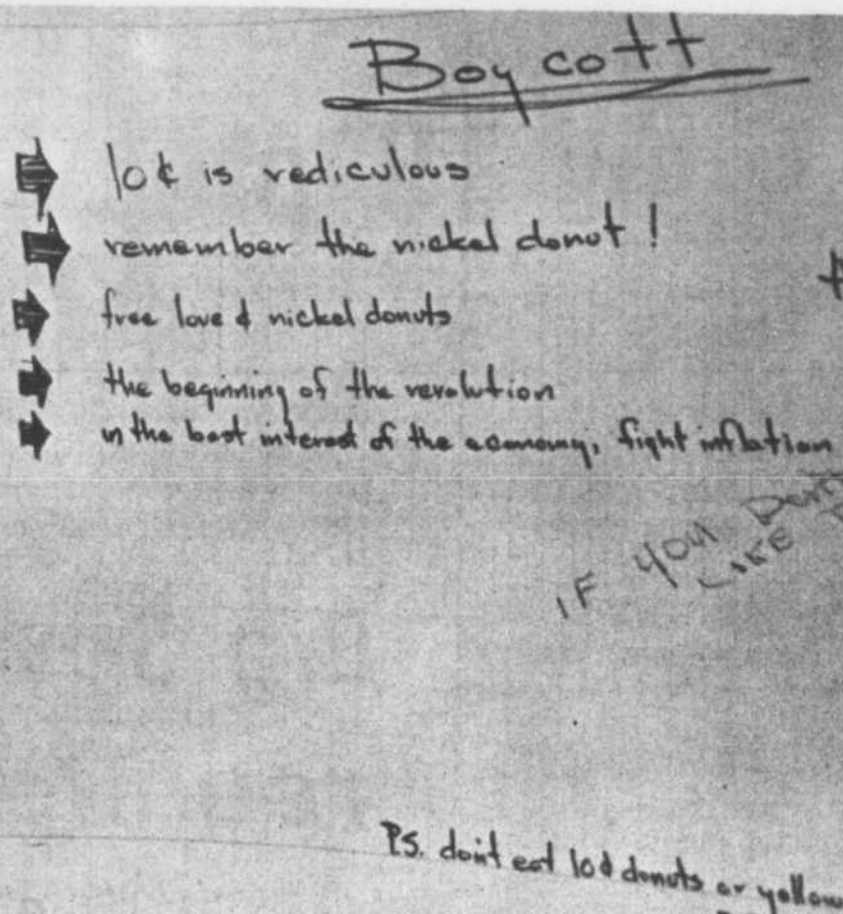 Boycott
10¢ is rediculous
remember the nickel donut!
free love & nickel donuts
the beginning of the revolution
in the best interest of the economy, fight inflation
IF YOU DON'T
LIKE
P.S. don't eat 10¢ donuts or yellow